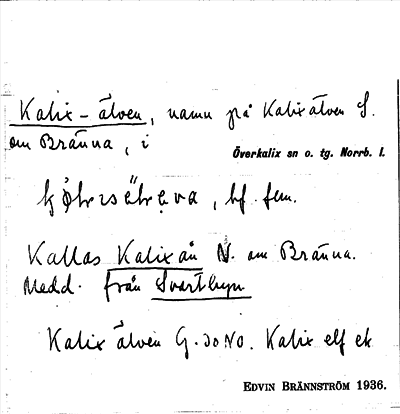 Kalix-älven, namn på Kalixälven S.
om Bränna, i
Överkalix sn o. tg. Norrb. l.
bf. fem.
Kallas Kalixån N. om Bränna.
Medd. från Svartbyn
Kalix älven G. do No. Kalix elf ek
EDVIN BRÄNNSTRÖM 1936.